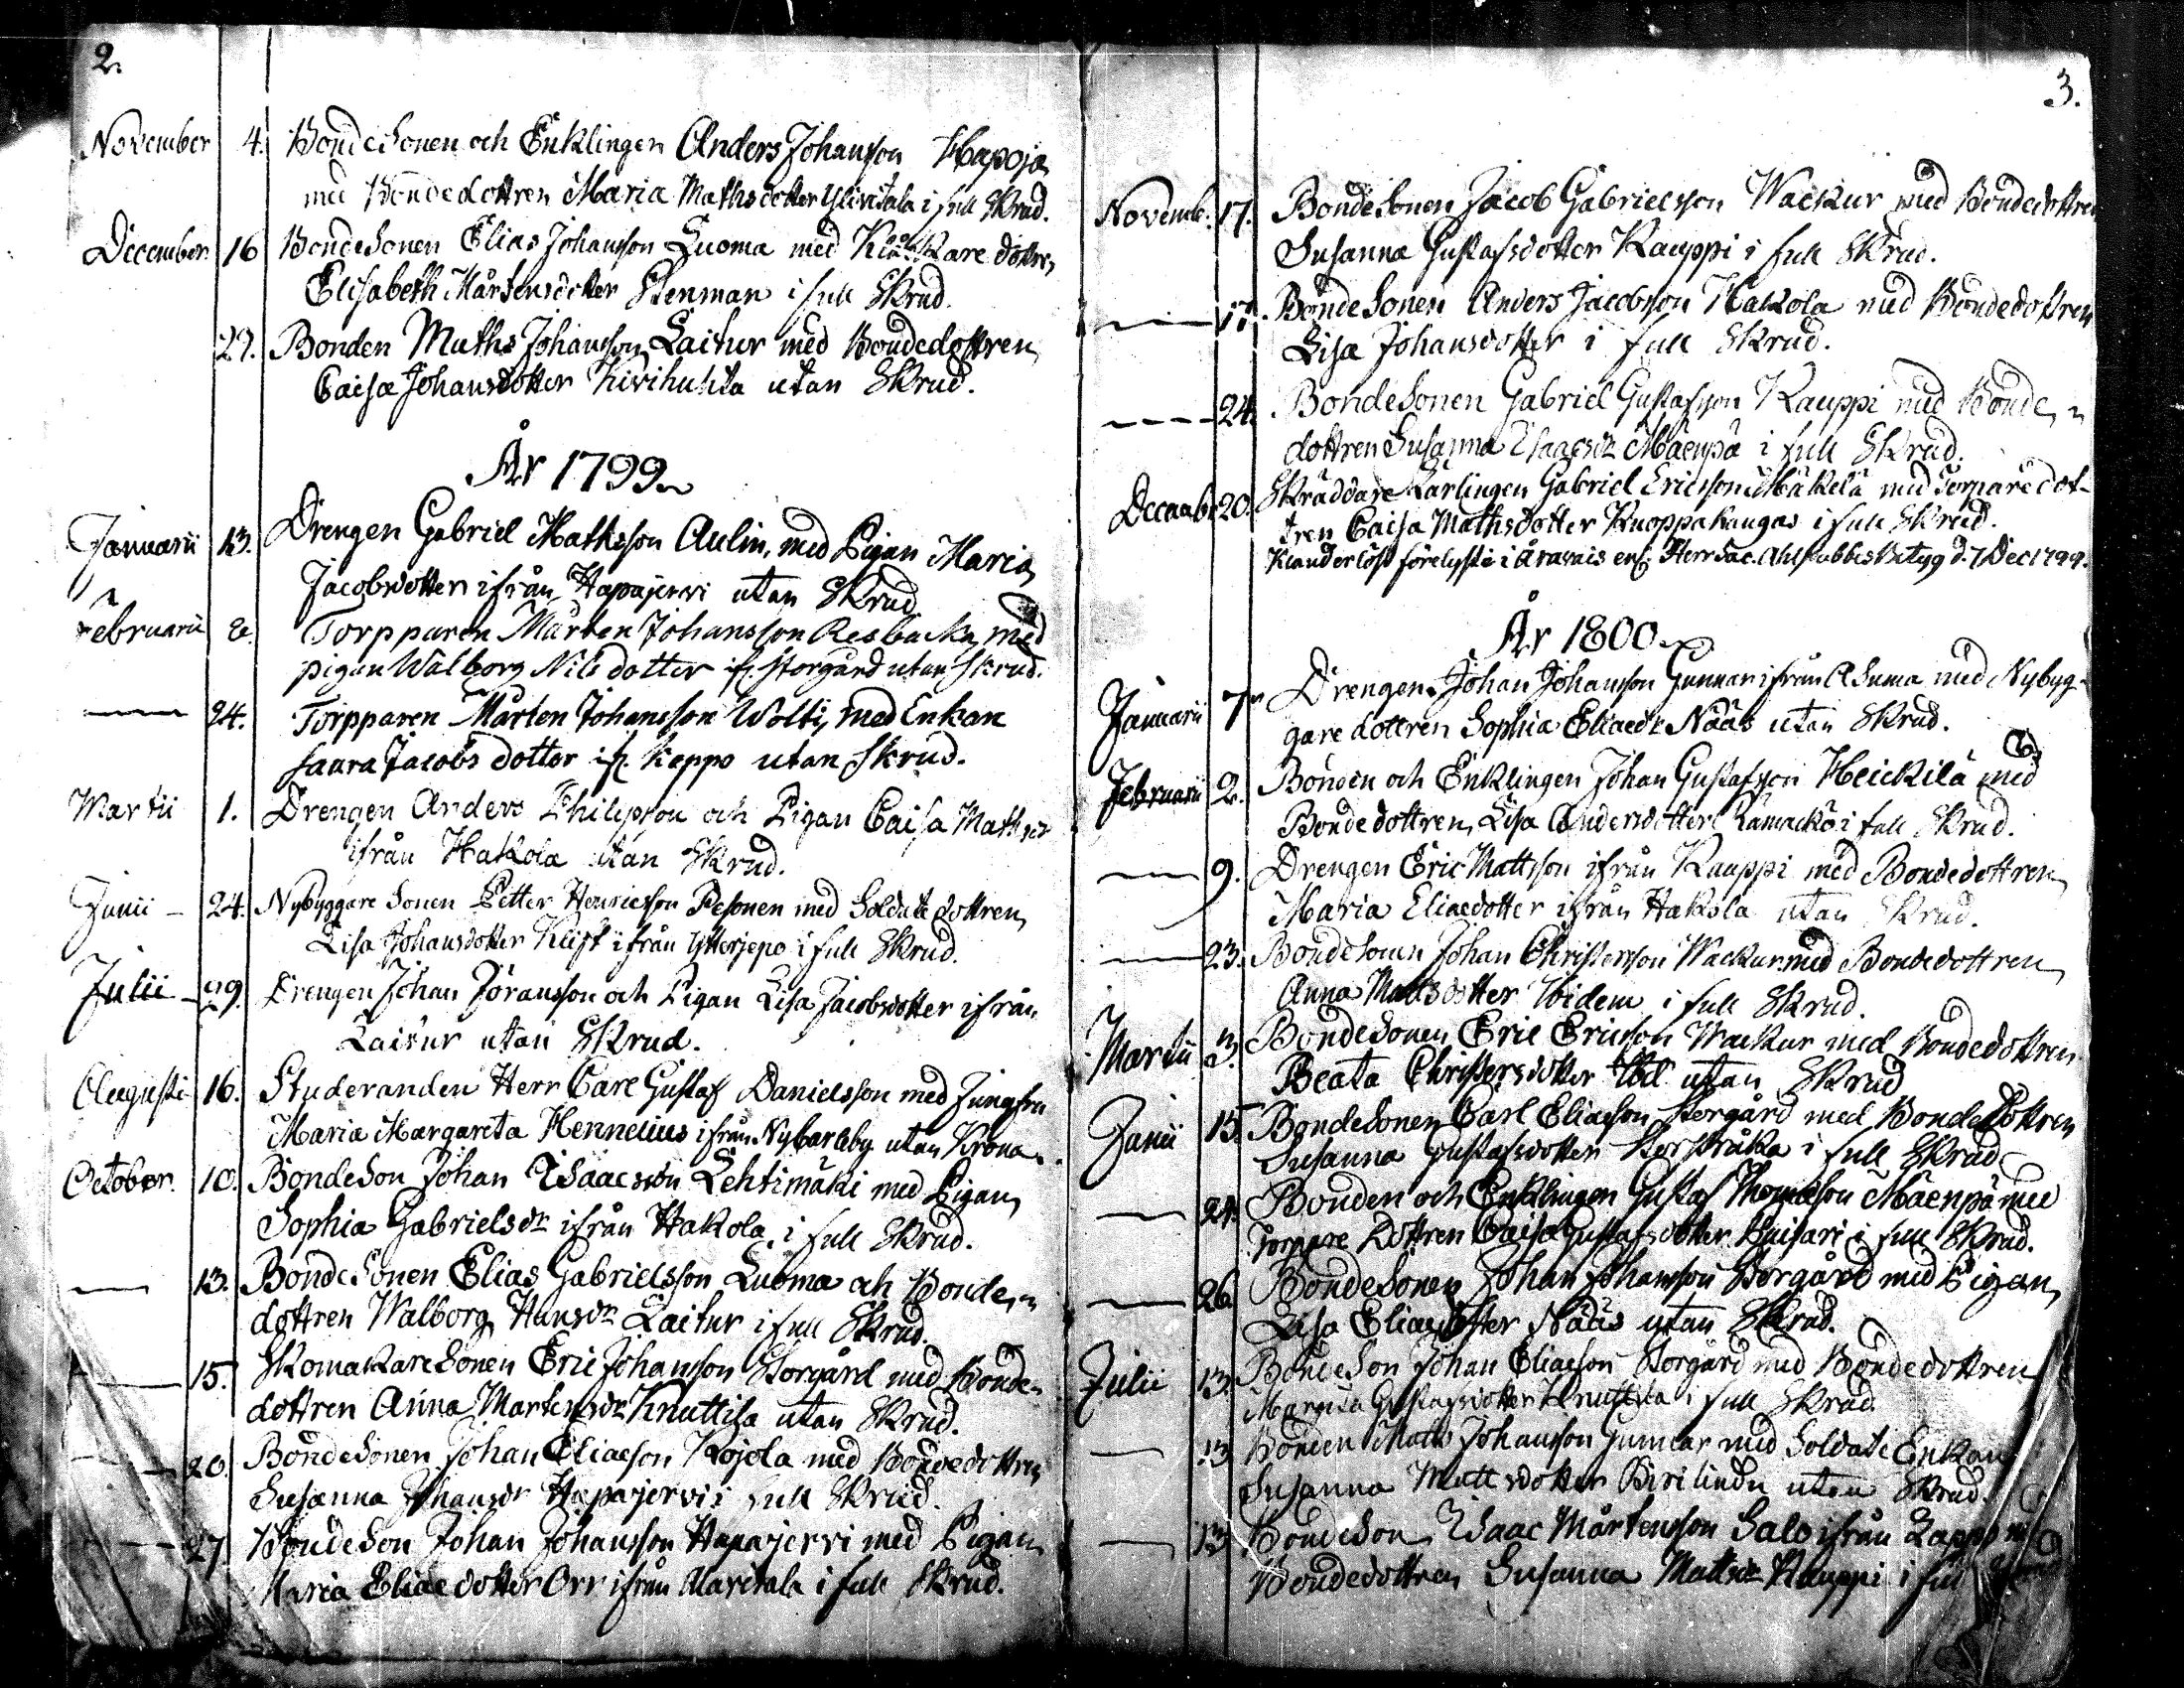 2.
November 4. Bondesonen och Enklingen Anders Johansson Hapoja
med Bondedottren Maria Mathsdotter Ylivitala i full Skrud.
December 16 Bondesonen Elias Johansson Luoma med dottren
Elisabeth Mårtensdotter Stenman i full Skrud.
27. Bonden Maths Johansson Laitur med Bondedottren
Caisa Johansdotter Kivihuhta utan Skrud.
År 1799
Januarii 13. Drengen Gabriel Mathsson Aulin, med Pigan Maria
Jacobsdotter ifrån Hapajervi utan Skrud
Februarii 2. Torpparen Mårten Johansson Resbacka med
pigan Walborg Nilsdotter if. Storgård utan skrud.
24. Torpparen Mårten Johansson Wolti, med Enkan
Laura Jacobs dotter if. Keppo utan skrud.
Martii 1. Drengen Anders Philipsson och Pigan Caisa Mathsdr
ifrån Hakola utan Skrud.
Junii - 24. Nybyggare Sonen Petter Henricsson Pesonen med Soldate dottren
Lisa Johansdotter Klift ifrån Ytterjepo i full Skrud.
Julii - 29. Drengen Johan Jöransson och Pigan Lisa Jacobsdotter ifrån
Laitur utan Skrud.
Augusti 16. Studeranden Herr Carl Gustaf Danielsson med Jungfru
Maria Margareta Hennelius ifrån Nykarleby utan Krona.
October. 10. Bondeson Johan Isaacsson Lehtimäki med Pigan
Sophia Gabrielsdr ifrån Hakola i full Skrud.
13. Bondesonen Elias Gabrielsson Luoma och Bonde
dottren Walborg Hansdr Laitur i full Skrud.
15. Skomakaresonen Eric Johansson Storgård med Bonde
dottren Anna Mårtensdr Knuttila utan Skrud.
20. Bondesonen Johan Eliaesson Kojola med Bondedottren
Susanna Johansdr Hapajervi i full Skrud.
27. Bondeson Johan Johansson Hapajervi med Pigan
Maria Eliaedotter Orr ifrån Alavitala i full Skrud.
3.
Novemb. 17. Bondesonen Jacob Gabrielsson Wackur med Bondedottren
Susanna Gustafsdotter Kauppi i full Skrud.
17. Bondesonen Anders Jacobsson Hakola med Bondedottren
Lisa Johansdotter i full Skrud.
24. Bondesonen Gabriel Gustafsson Kauppi med Bonde
dottren Susanna Isaacsdr Mäenpä i full Skrud.
Decemb. 20. Skräddare Karlingen Gabriel Ericsson Mäkelä med Torparedot-
tren Caisa Mathsdotter Knoppakangas i full Skrud.
Klanderlöst förelyste i Åravais enl. Herr Sac. Ahlstubbes Betyg d. 7 Dec 1799.
År 1800
Januarii 7. Drengen Johan Johansson Gunnar ifrån med Nybyg-
gare dottren Sophia Eliaedr Nääs utan Skrud.
Februarii 2. Bonden och Enklingen Johan Gustafsson Heickilä med
Bondedottren Lisa Andersdotter Kamackå i full Skrud.
9. Drengen Eric Mattsson ifrån Kauppi med Bondedottren
Maria Eliaedotter ifrån Hakola utan Skrud.
23. Bondesonen Johan Christersson Wackur med Bondedottren
Anna Mattsdotter Ibidem i full Skrud.
Martii 3. Bondesonen Eric Ericsson Wackur med Bondedottren
Beata Christersdotter Ibd. utan Skrud
Junii 15. Bondesonen Carl Eliaeson Storgård med Bondedottren
Susanna Gustafsdotter Storstråka i full Skrud
24. Bonden och Enklingen Gustaf Thomasson Mäenpä med
Torppare Dottren Caisa Gustafsdotter i full Skrud.
26. Bondesonen Johan Johansson Storgård med Pigan
Lisa Eliaedotter Nääs utan Skrud.
Julii 13. Bondeson Johan Eliaeson Storgård med Bondedottren
Margeta Gustafsdotter Knuttila i full Skrud.
13 Bonden Maths Johansson Gunnar med Soldate Enkan
Susanna Mattsdotter utan Skrud.
13 Bondeson Isaac Mårtensson Salo ifrån Kappo
Bondedottren Susanna Mattsdr Kauppi i full